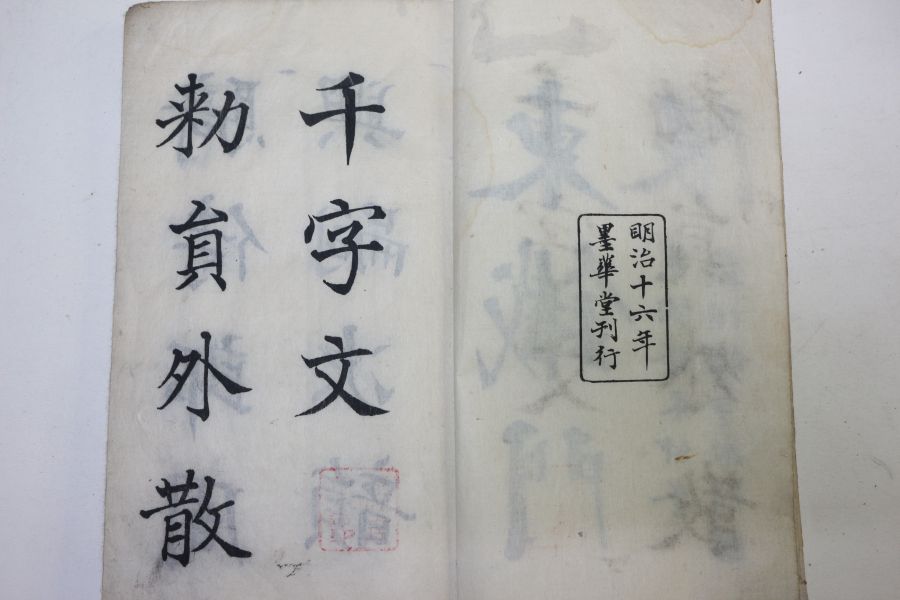 明治十六年
墨華堂刊行
千字文
勑貟外散